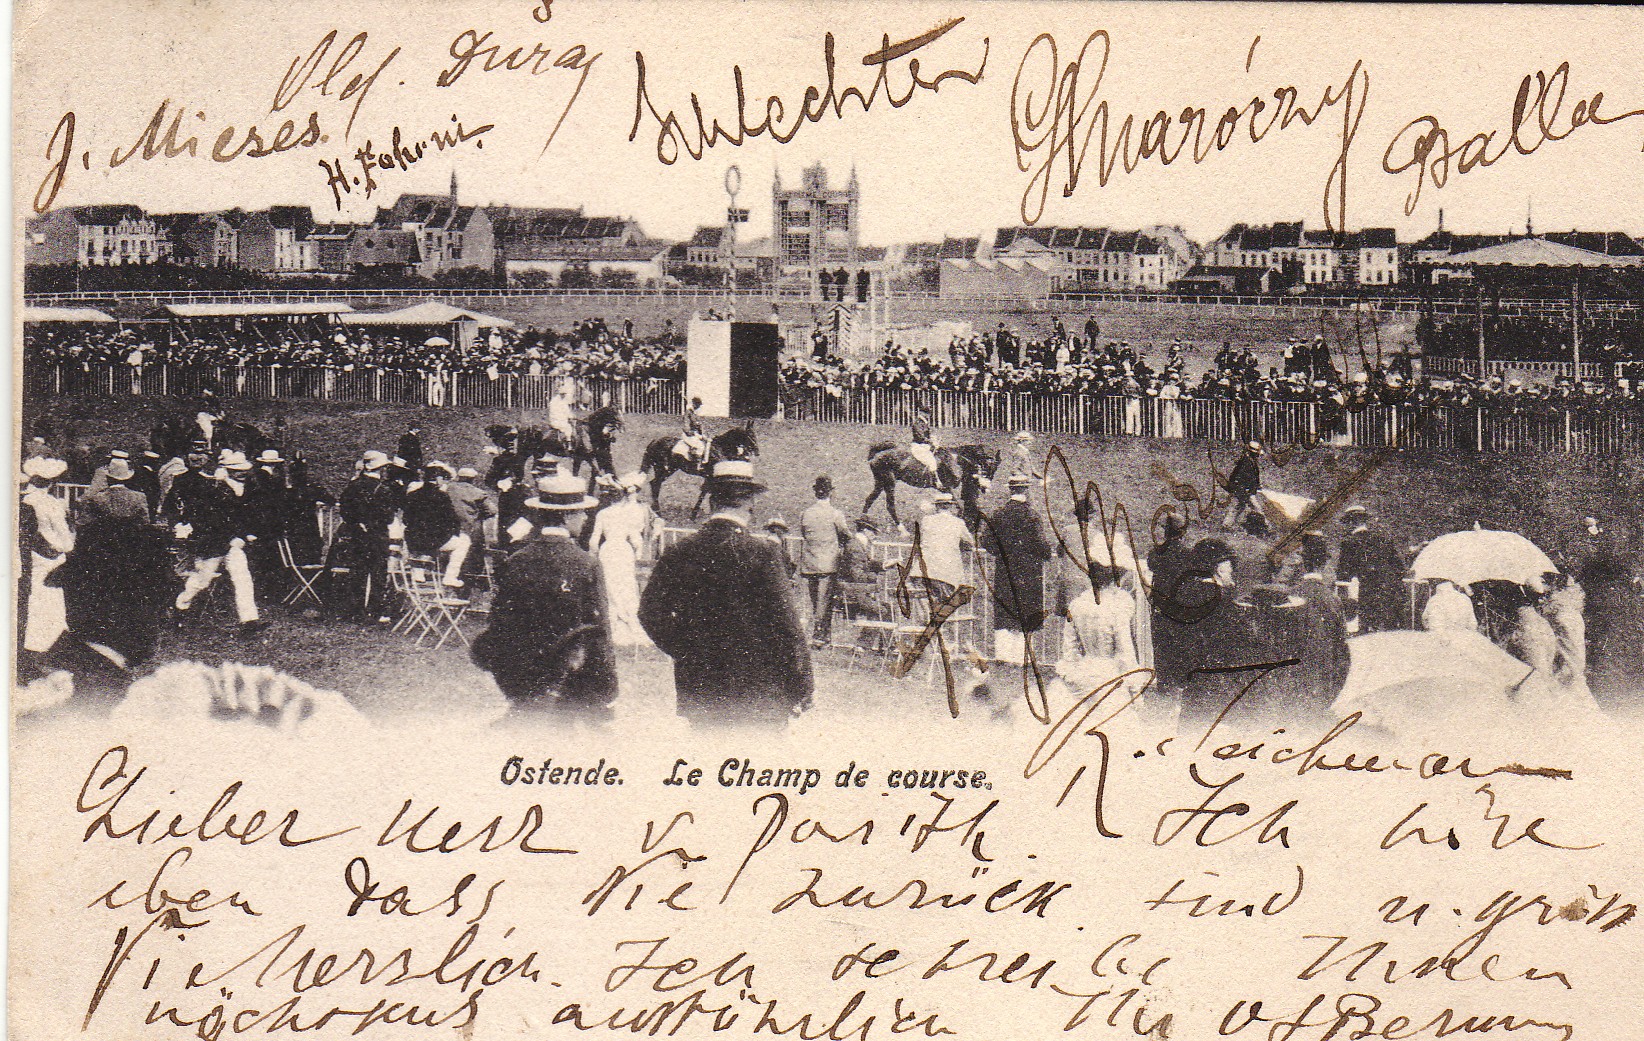 Old. Duras
J. Mieses.
H. Fahrni.
Schlechter
G Maróczy
Balla
F. J. Marshall
R. Teichmann
Ostende. Le Champ de course.
Lieber Herr v Ich höre
eben dass Sie zurück sind u. grüße
Sie herzlich. Ich schreibe Ihnen
nächstens ausführlich Ihr OSBernstein